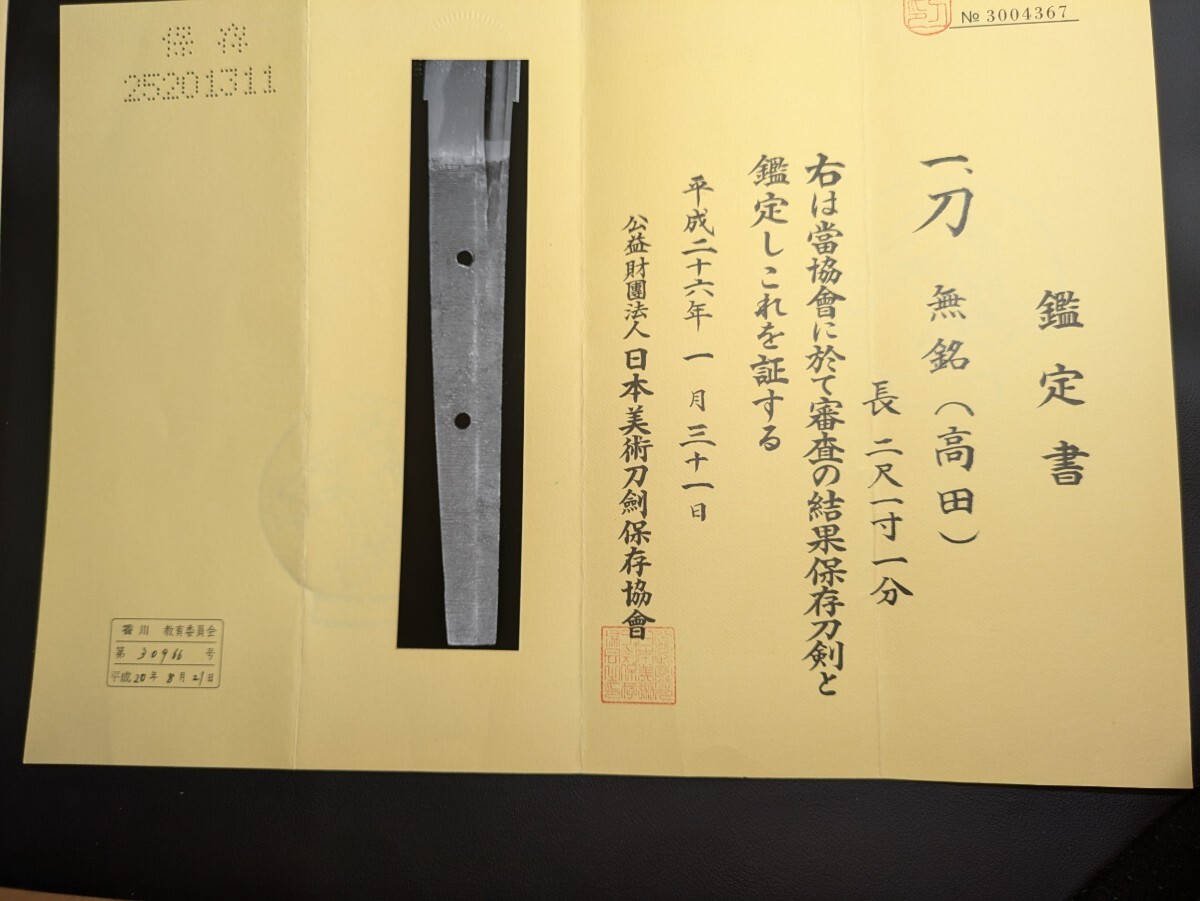 № 3004367
鑑定書
一、刀 無銘(高田)
長 二尺一寸一分
右は當協會に於て審査の結果保存刀剣と
鑑定しこれを証する
平成二十六年 一月 三十一日
公益財團法人 日本美術刀劍保存協會
保存
25201311
香川 教育委員会
第 30966 号
平成20年 8月21日